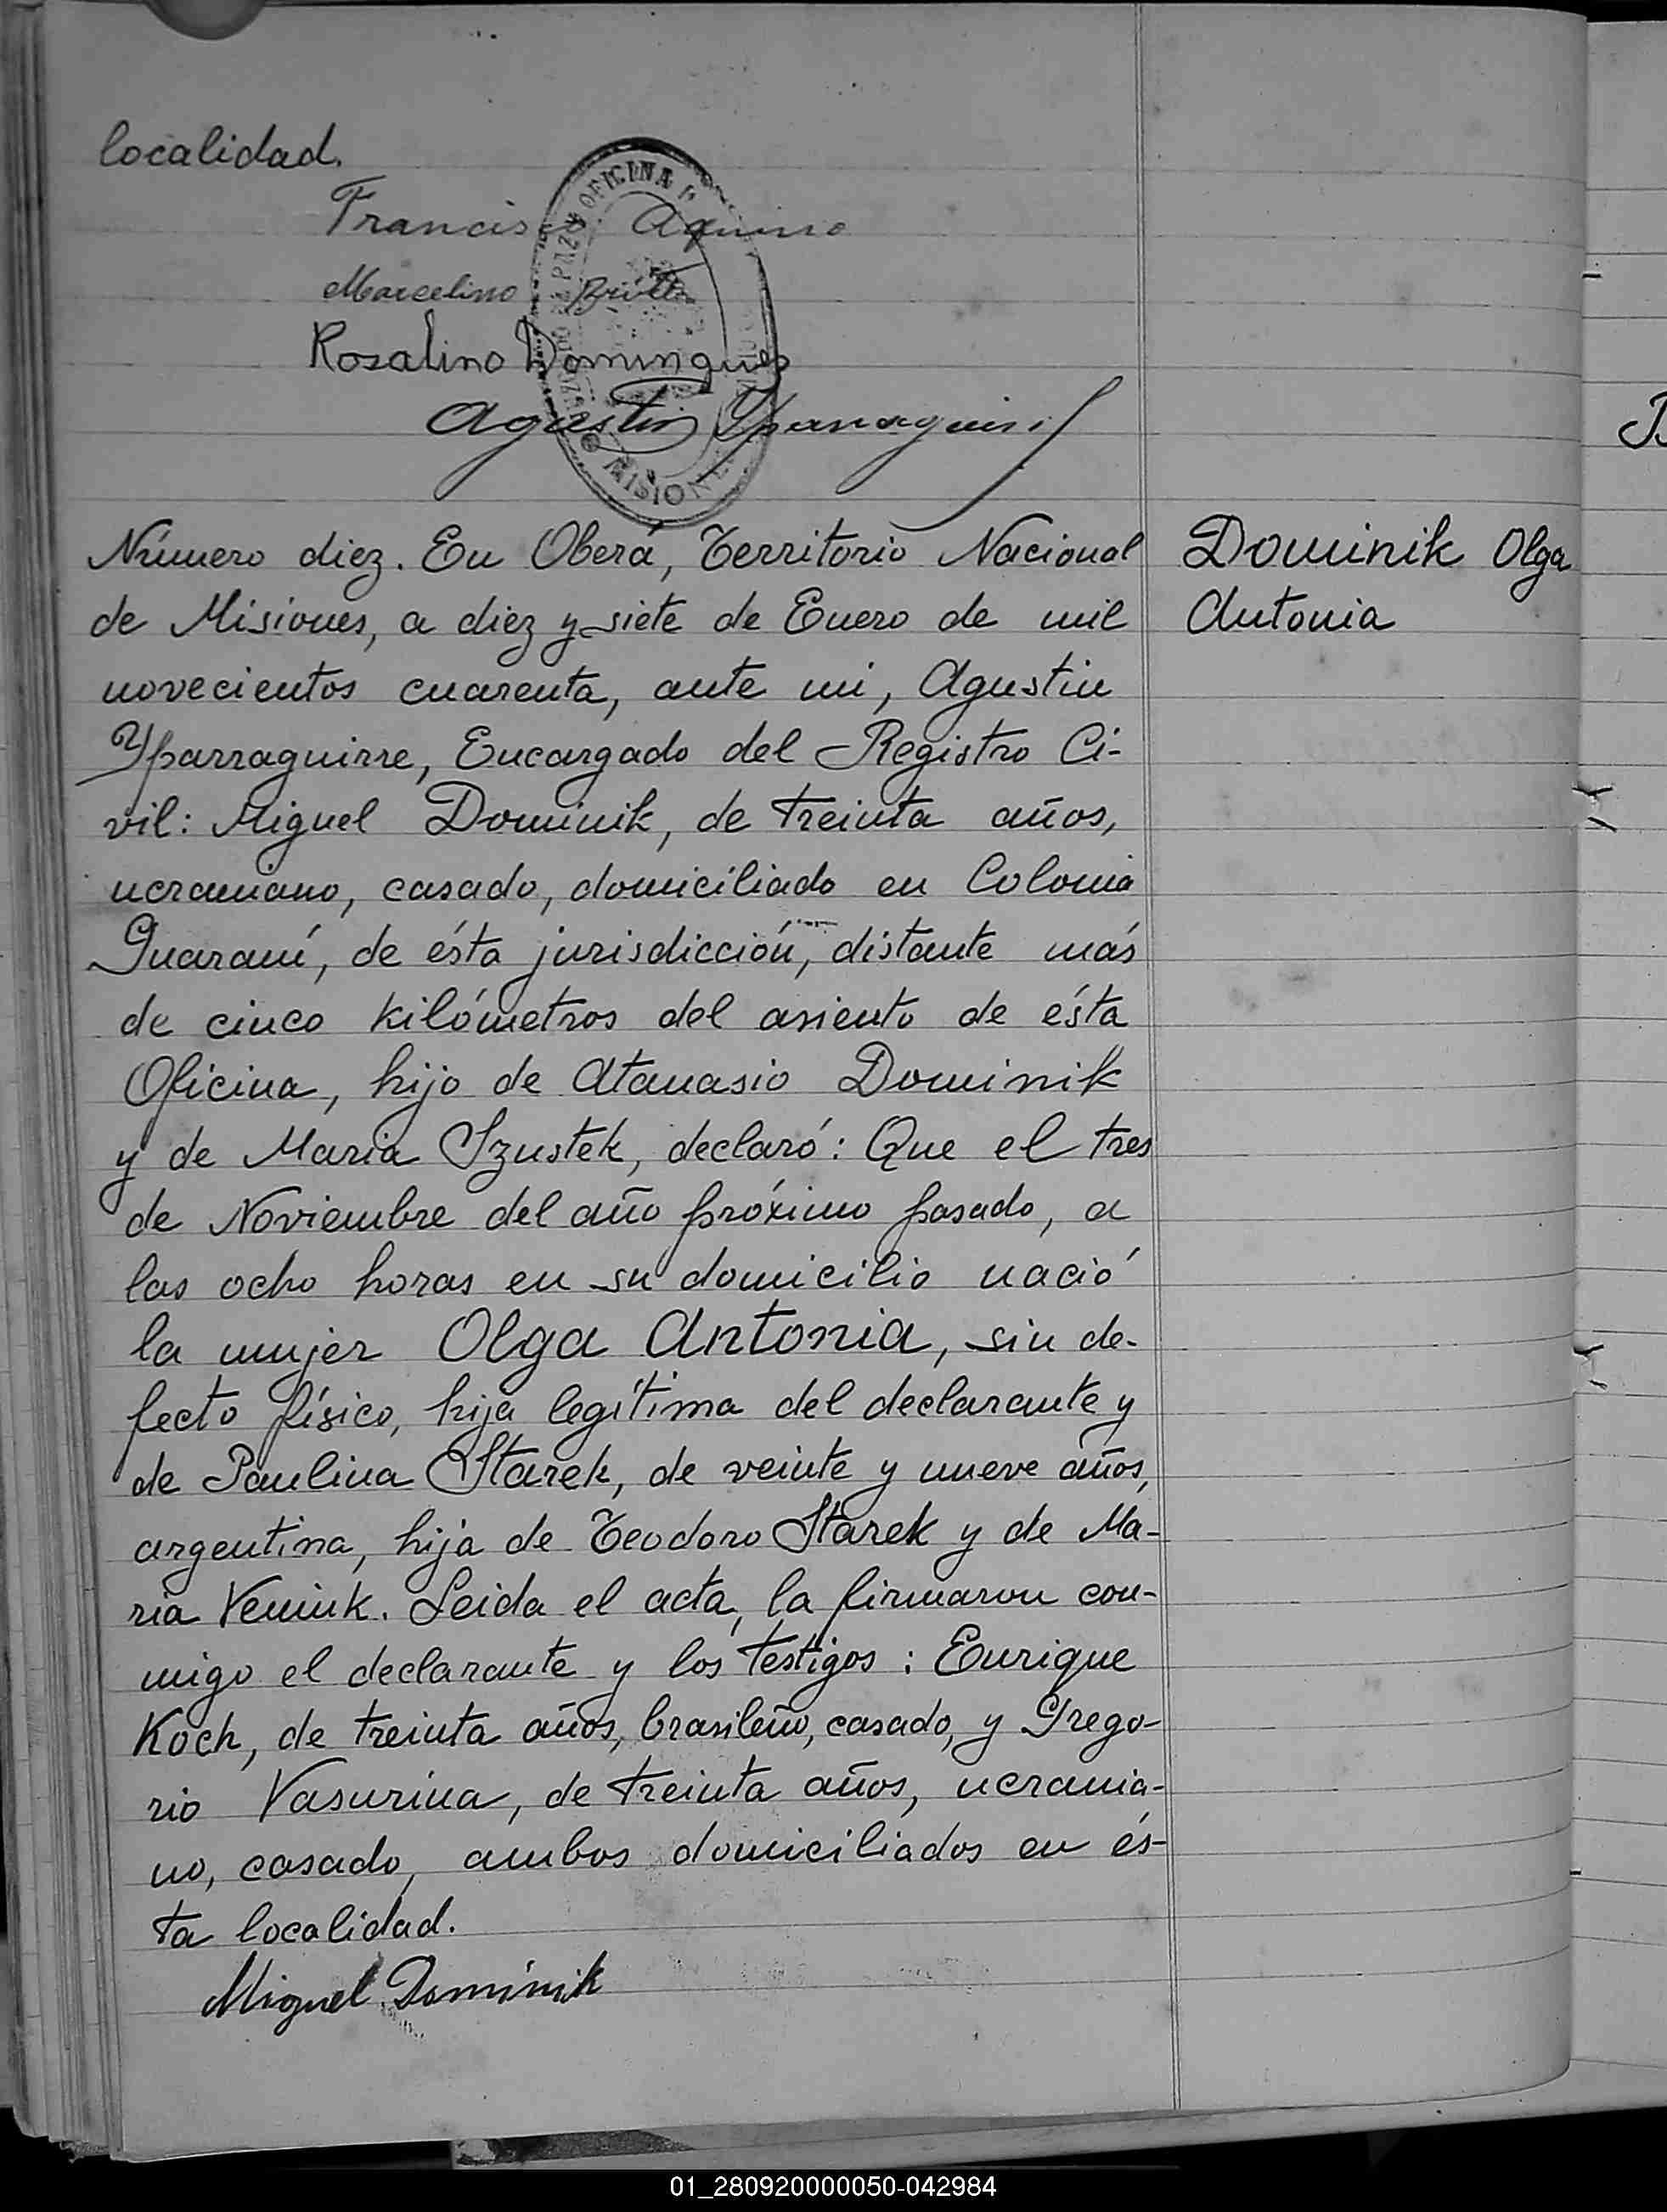 localidad.
Francisco Aquino
Marcelino Britto
Rosalino Domingues
Agustin Yparraguirre
OFICINA
PAZ
MISIONES
Número diez. En Oberá, Territorio Nacional
de Misiones, a diez y siete de Enero de mil
novecientos cuarenta, ante mi, Agustin
Yparraguirre, Encargado del Registro Ci-
vil: Miguel Dominik, de treinta años,
ucraniano, casado, domiciliado en Colonia
Guaraní, de ésta jurisdicción, distante más
de cinco kilómetros del asiento de ésta
Oficina, hijo de Atanasio Dominik
y de Maria Szustek, declaró: Que el tres
de Noviembre del año próximo pasado, a
las ocho horas en su domicilio nació
la mujer Olga Antonia, sin de-
fecto físico, hija legítima del declarante y
de Paulina Starek, de veinte y nueve años,
argentina, hija de Teodoro Starek y de Ma-
ria Veniuk. Leida el acta, la firmaron con-
migo el declarante y los testigos: Enrique
Koch, de treinta años, brasileño, casado, y Grego-
rio Vasurina, de treinta años, ucrania-
no, casado, ambos domiciliados en és-
ta localidad.
Miguel Dominik
Dominik Olga
Antonia
01_280920000050-042984